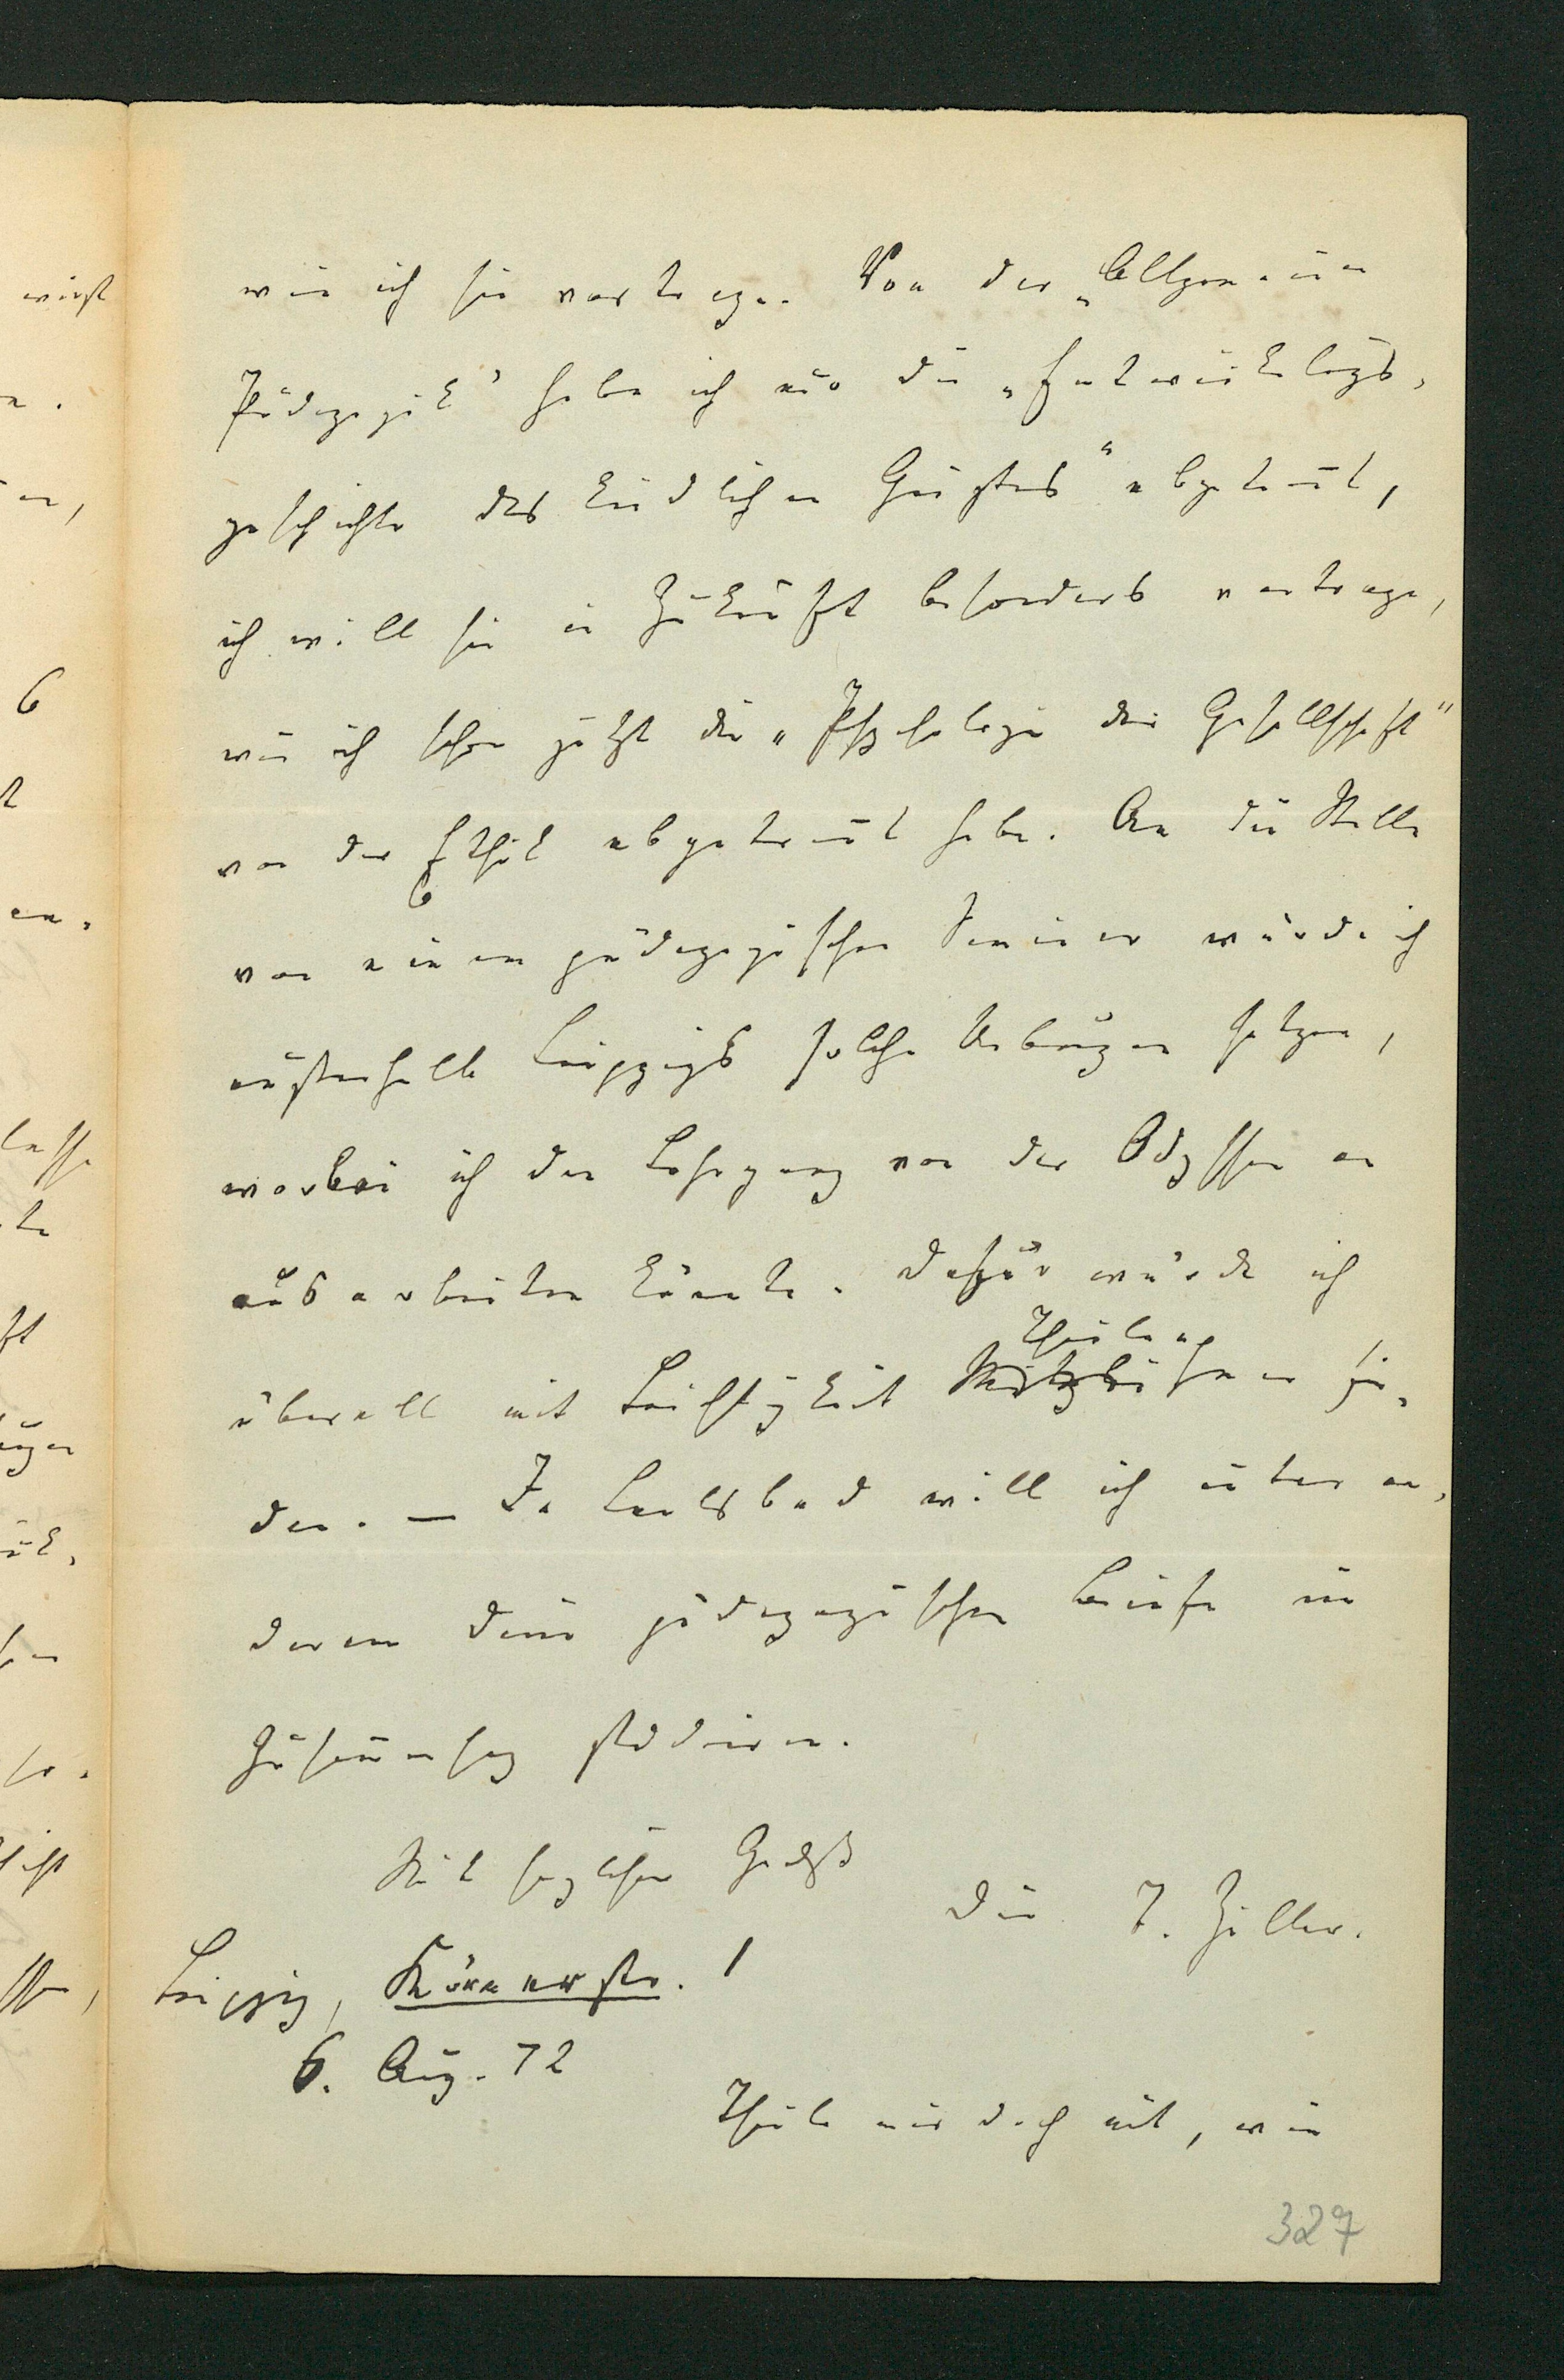 wie ich sie vortrage. Von der „Allgemeinen
Pädagogik" habe ich nur die „Entwickelungs-
geschichte des kindlichen Geistes" abgetrennt,
ich will sie in Zukunft besonders vortragen,
wie ich schon jetzt die „Psychologie der Gesellschaft"
von der Ethik abgetrennt habe. An die Stelle
von einem pädagogischen Seminar würde ich
außerhalb Leipzigs solche Uebungen setzen,
worbei ich den Lehrgang von der Odyssee an
ausarbeiten könnte. Dafür würde ich
Theilneh
überall mit Leichtigkeit mer fin-
den. — In Carlsbad will ich unter an-
derem Deine pädagogischen Briefe im
Zusammenhang studieren.
Mit herzlichem Gruß
Dein T. Ziller.
Leipzig, Körnerstr. 1
6. Aug. 72
Theile mir doch mit, wie
327